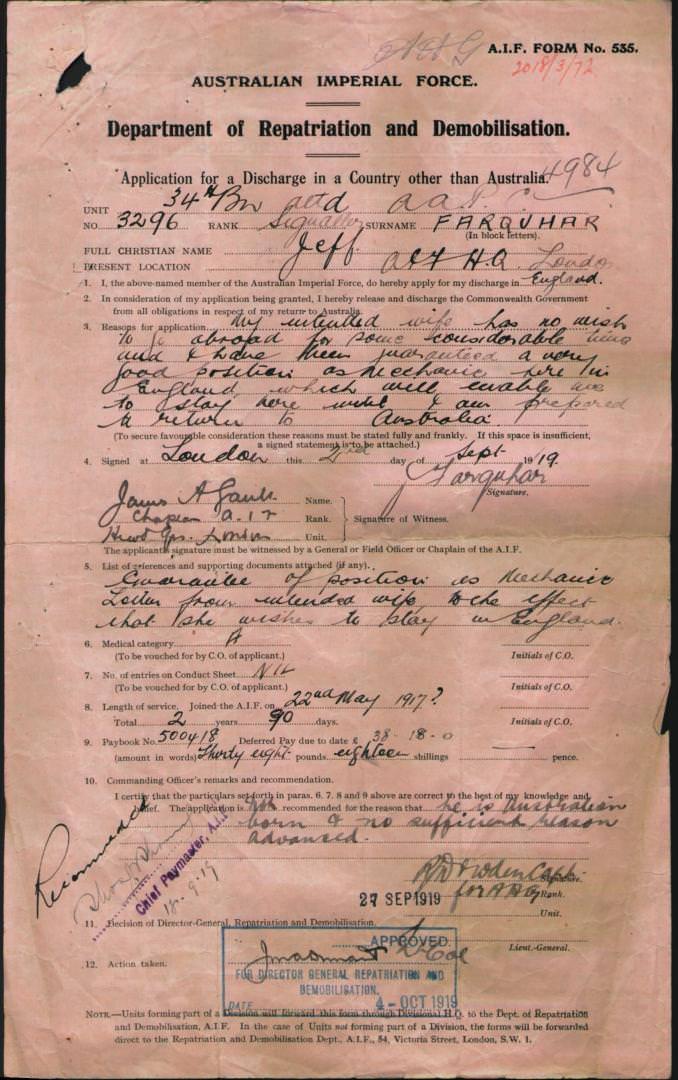 A.A.G
A.I.F. FORM No. 535.
2018/3/72
AUSTRALIAN IMPERIAL FORCE.
Department of Repatriation and Demobilisation.
Application for a Discharge in a Country other than Australia.
4984
UNIT 34th Bn attd A.A.P.C.
NO. 3296 RANK Signaller SURNAME FARQUHAR
(In block letters).
FULL CHRISTIAN NAME Jeff
PRESENT LOCATION AIF H.Q. London
1. I, the above-named member of the Australian Imperial Force, do hereby apply for my discharge in England.
2. In consideration of my application being granted, I hereby release and discharge the Commonwealth Government
from all obligations in respect of my return to Australia.
3. Reasons for application. My intended wife has no wish
to go abroad for some considerable time
and I have been guaranteed a very
good position as Mechanic here in
England, which will enable me
to stay here until I am prepared
to return to Australia.
(To secure favourable consideration these reasons must be stated fully and frankly. If this space is insufficient,
a signed statement is to be attached.)
4. Signed at London this 2nd day of Sept 1919.
J Farquhar
Signature.
James A Gault Name.
Chaplain A.I.F Rank. Signature of Witness.
Head Qrs. London Unit.
The applicant's signature must be witnessed by a General or Field Officer or Chaplain of the A.I.F.
5. List of references and supporting documents attached (if any).
Guarantee of position as Mechanic
Letter from intended wife to the effect
that she wishes to stay in England.
6. Medical category A
(To be vouched for by C.O. of applicant.) Initials of C.O.
7. No. of entries on Conduct Sheet NIL
(To be vouched for by C.O. of applicant.) Initials of C.O.
8. Length of service. Joined the A.I.F. on 22nd May 1917?
Total 2 years 90 days. Initials of C.O.
9. Paybook No. 500418 Deferred Pay due to date £ 38-18-0
(amount in words) Thirty eight pounds eighteen shillings — pence.
10. Commanding Officer's remarks and recommendation.
I certify that the particulars set forth in paras. 6, 7, 8 and 9 above are correct to the best of my knowledge and
belief. The application is not recommended for the reason that he is Australian
born & no sufficient reason
advanced.
Recommended
Chief Paymaster, A.I.F.
18.9.19
Capt. Signature.
for AAG Rank.
27 SEP 1919
Unit.
11. Decision of Director-General, Repatriation and Demobilisation.
APPROVED.
Lieut.-General.
12. Action taken.
Lt Col
FOR DIRECTOR GENERAL REPATRIATION AND
DEMOBILISATION.
DATE 4-OCT 1919
NOTE.—Units forming part of a Division will forward this form through Divisional H.Q. to the Dept. of Repatriation
and Demobilisation, A.I.F. In the case of Units not forming part of a Division, the forms will be forwarded
direct to the Repatriation and Demobilisation Dept., A.I.F., 54, Victoria Street, London, S.W. 1.